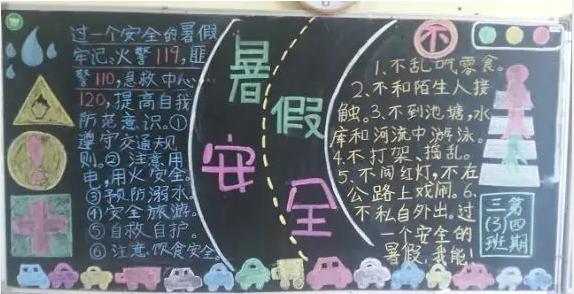 过一个安全的暑假
牢记：火警119，匪
警110，急救中心
120，提高自我
防范意识。①
遵守交通规
则。②注意用
电，用火安全。
③预防溺水。
④安全旅游。
⑤自救自护。
⑥注意饮食安全。
暑假
安全
不
1.不乱吃零食。
2.不和陌生人接
触。3.不到池塘，水
库和河流中游泳。
4.不打架、捣乱。
5.不闯红灯，不在
公路上戏闹。6.
不私自外出。过
一个安全的
暑假，我能！
第四期
三(3)班